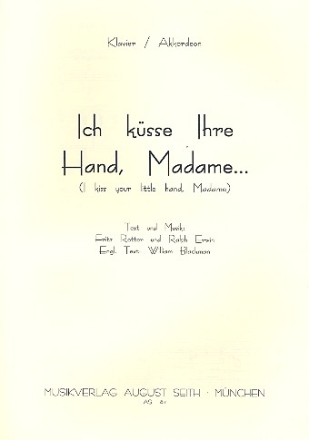 Klavier / Akkordeon
Ich küsse Ihre
Hand, Madame...
(I kiss your little hand, Madame)
Text und Musik:
Fritz Rotter und Ralph Erwin
Engl. Text: William
MUSIKVERLAG AUGUST SEITH · MÜNCHEN